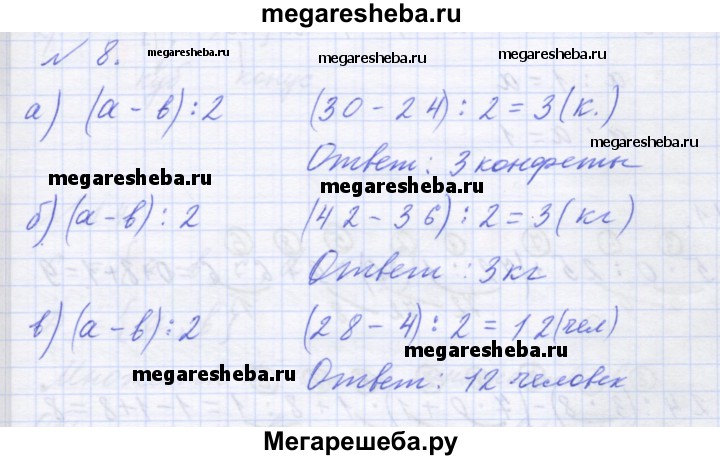 megaresheba.ru
№ 8. megaresheba.ru megaresheba.ru
а) (а - в) : 2 (30 - 24) : 2 = 3 (к.)
megaresheba.ru
Ответ: 3 конфеты
megaresheba.ru megaresheba.ru
б) (а - в) : 2 (42 - 36) : 2 = 3 (кг)
Ответ: 3 кг
в) (а - в) : 2 (28 - 4) : 2 = 12 (чел)
megaresheba.ru
megaresheba.ru Ответ: 12 человек
Мегарешеба.ру